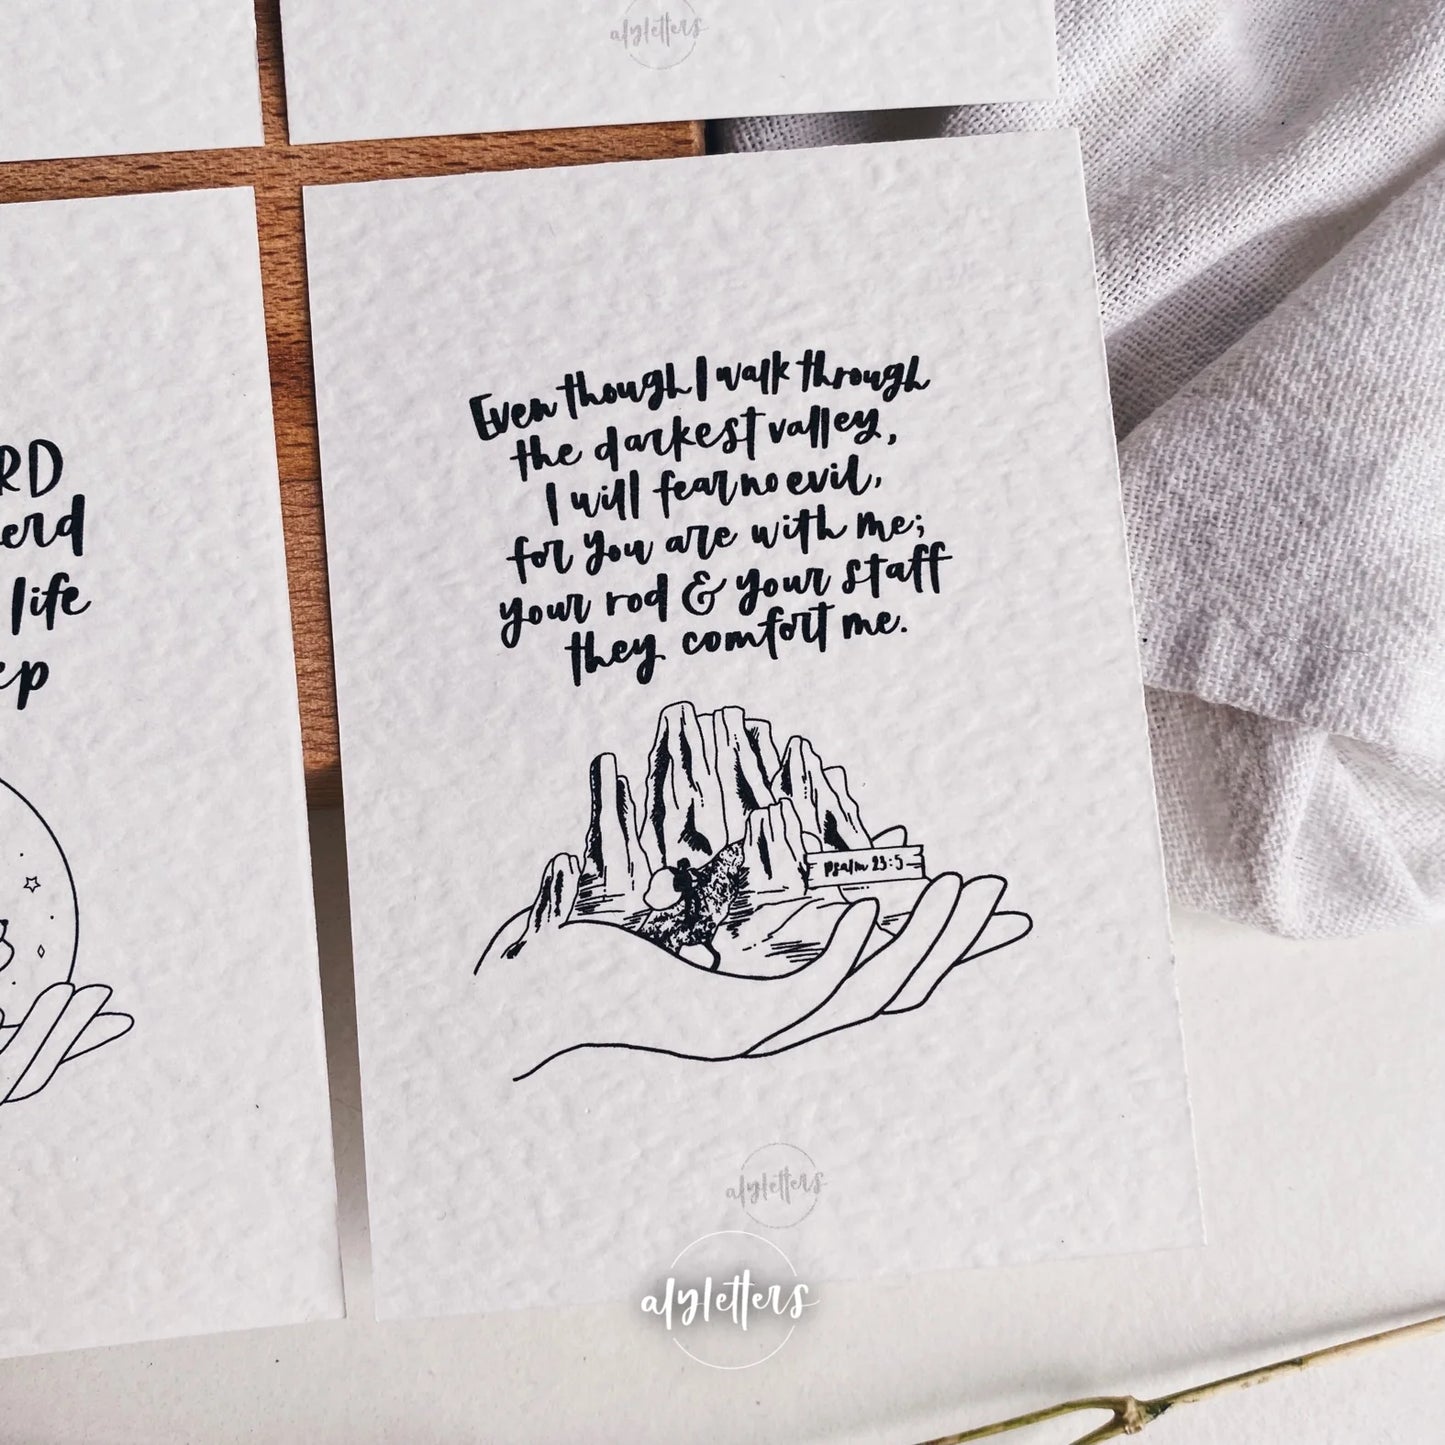 alyletters
RD
erd
life
ep
Even though I walk through
the darkest valley,
I will fear no evil,
for you are with me;
your rod & your staff
they comfort me.
Psalm 23:5
alyletters
alyletters